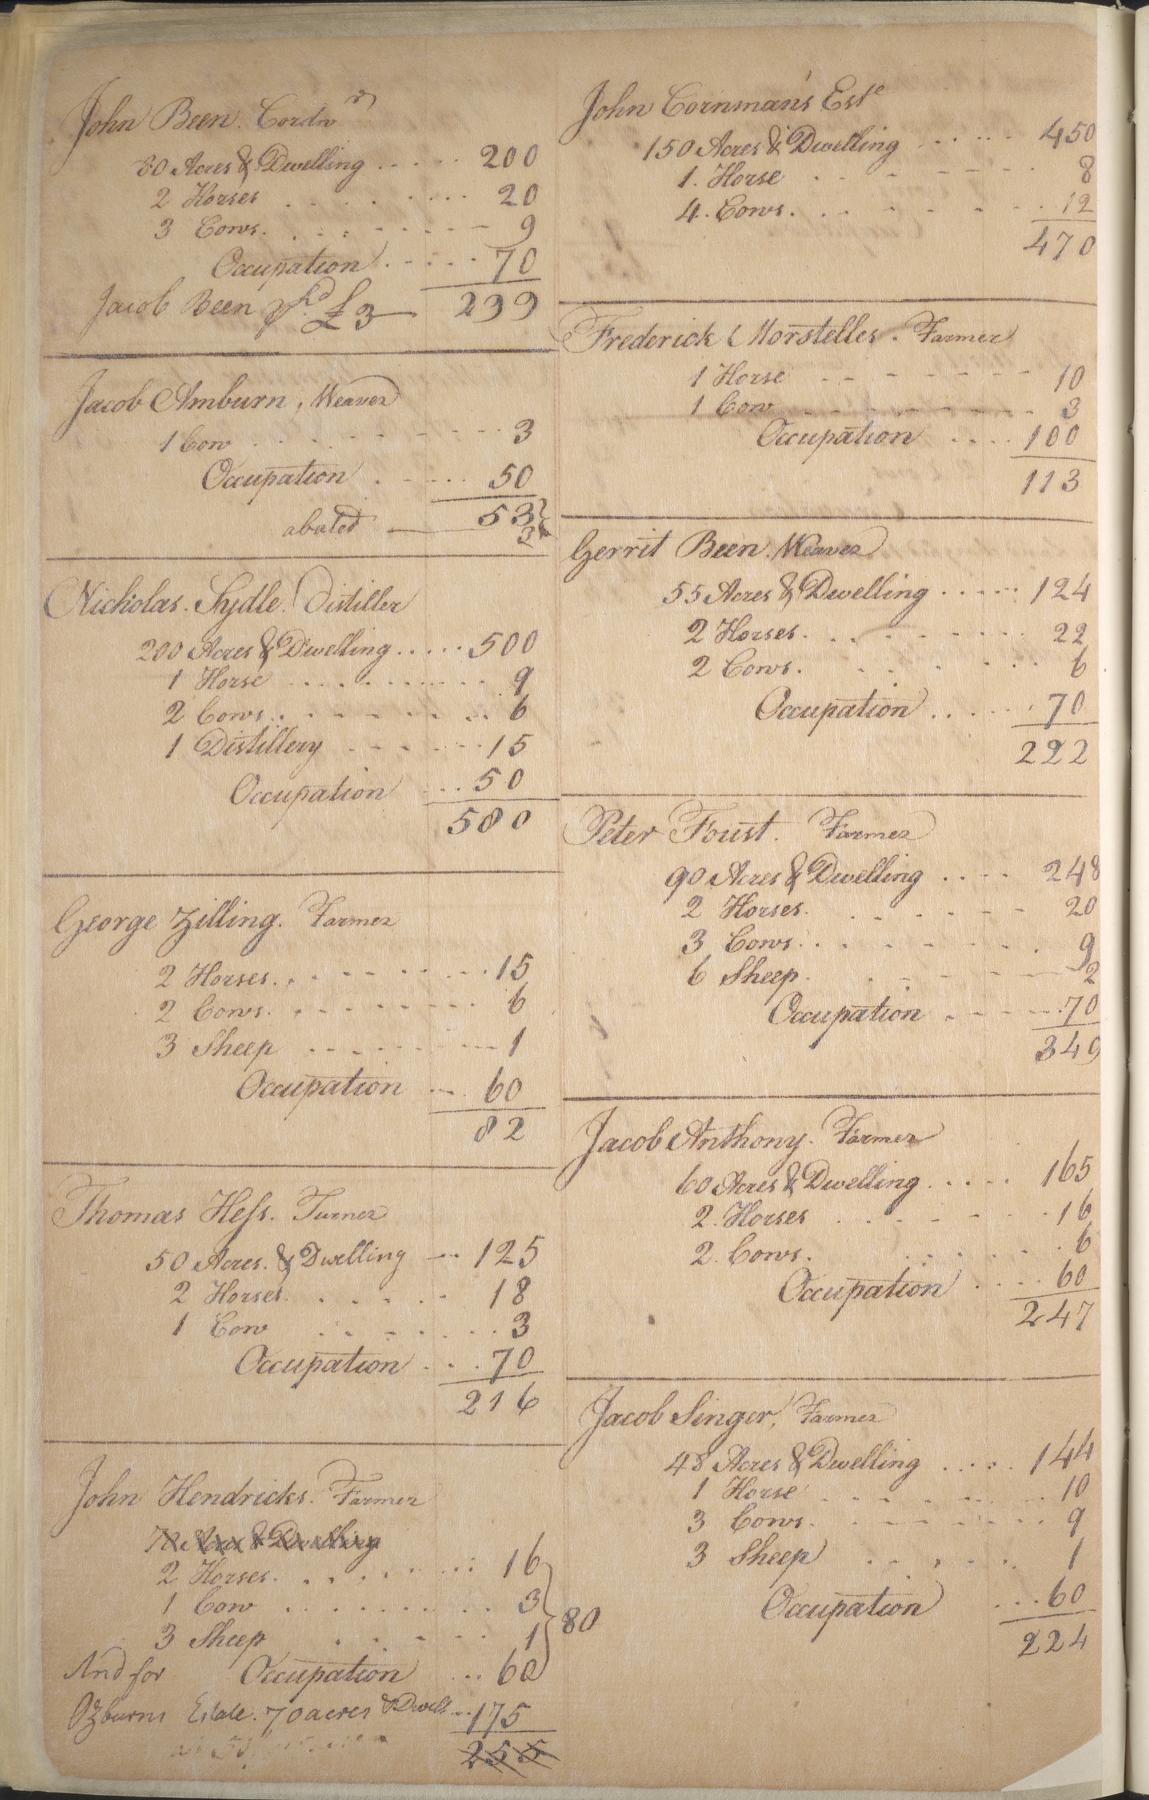 John Been. Cordwr
80 Acres & Dwelling ..... 200
2 Horses ........ 20
3 Cows. ........ 9
Occupation ..... 70
Jacob Been pd. £3 239
Jacob Amburn, Weaver
1 Cow ......... 3
Occupation ..... 50
53
abated — 3
Nicholas. Sydle. Distiller
200 Acres & Dwelling ..... 500
1 Horse .......... 9
2 Cows ......... 6
1 Distillery ...... 15
Occupation ... 50
580
George Zilling. Farmer
2 Horses. ........ 15
2 Cows. ........ 6
3 Sheep ........ 1
Occupation ... 60
82
Thomas Hess. Turner
50 Acres. & Dwelling ... 125
2 Horses. ..... 18
1 Cow ....... 3
Occupation ... 70
216
John Hendricks. Farmer
70 Acres & Dwelling
2 Horses. ....... 16
1 Cow ........ 3
80
3 Sheep ..... 1
And for Occupation ... 60
Ozburns Estate. 70 acres & Dwell ... 175
255
John Cornman's Este
150 Acres & Dwelling ..... 450
1. Horse ........ 8
4. Cows. ........ 12
470
Frederick Morsteller. Farmer
1 Horse ........ 10
1 Cow ........ 3
Occupation .... 100
113
Gerrit Been. Weaver
55 Acres & Dwelling ..... 124
2 Horses. ........ 22
2 Cows. ..... 6
Occupation ..... 70
222
Peter Foust. Farmer
90 Acres & Dwelling .... 248
2 Horses. ...... 20
3 Cows. ........ 9
6 Sheep. ..... 2
Occupation ..... 70
349
Jacob Anthony. Farmer
60 Acres & Dwelling ..... 165
2. Horses ...... 16
2. Cows. ...... 6
Occupation .... 60
247
Jacob Singer, Farmer
48 Acres & Dwelling ..... 144
1 Horse ........ 10
3 Cows. ........ 9
3 Sheep ...... 1
Occupation ... 60
224